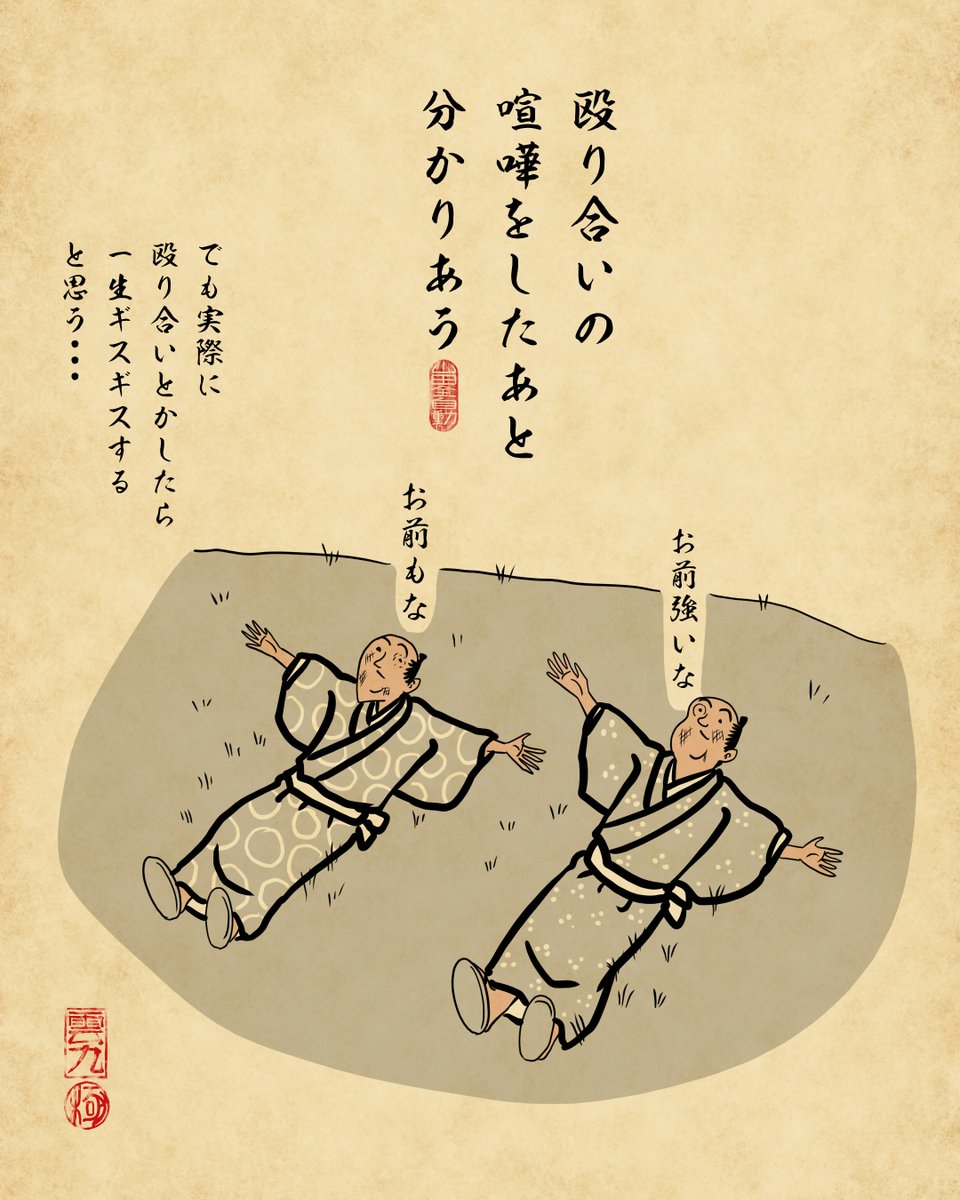 殴り合いの
喧嘩をしたあと
分かりあう
お前強いな
お前もな
でも実際に
殴り合いとかしたら
一生ギスギスする
と思う・・・